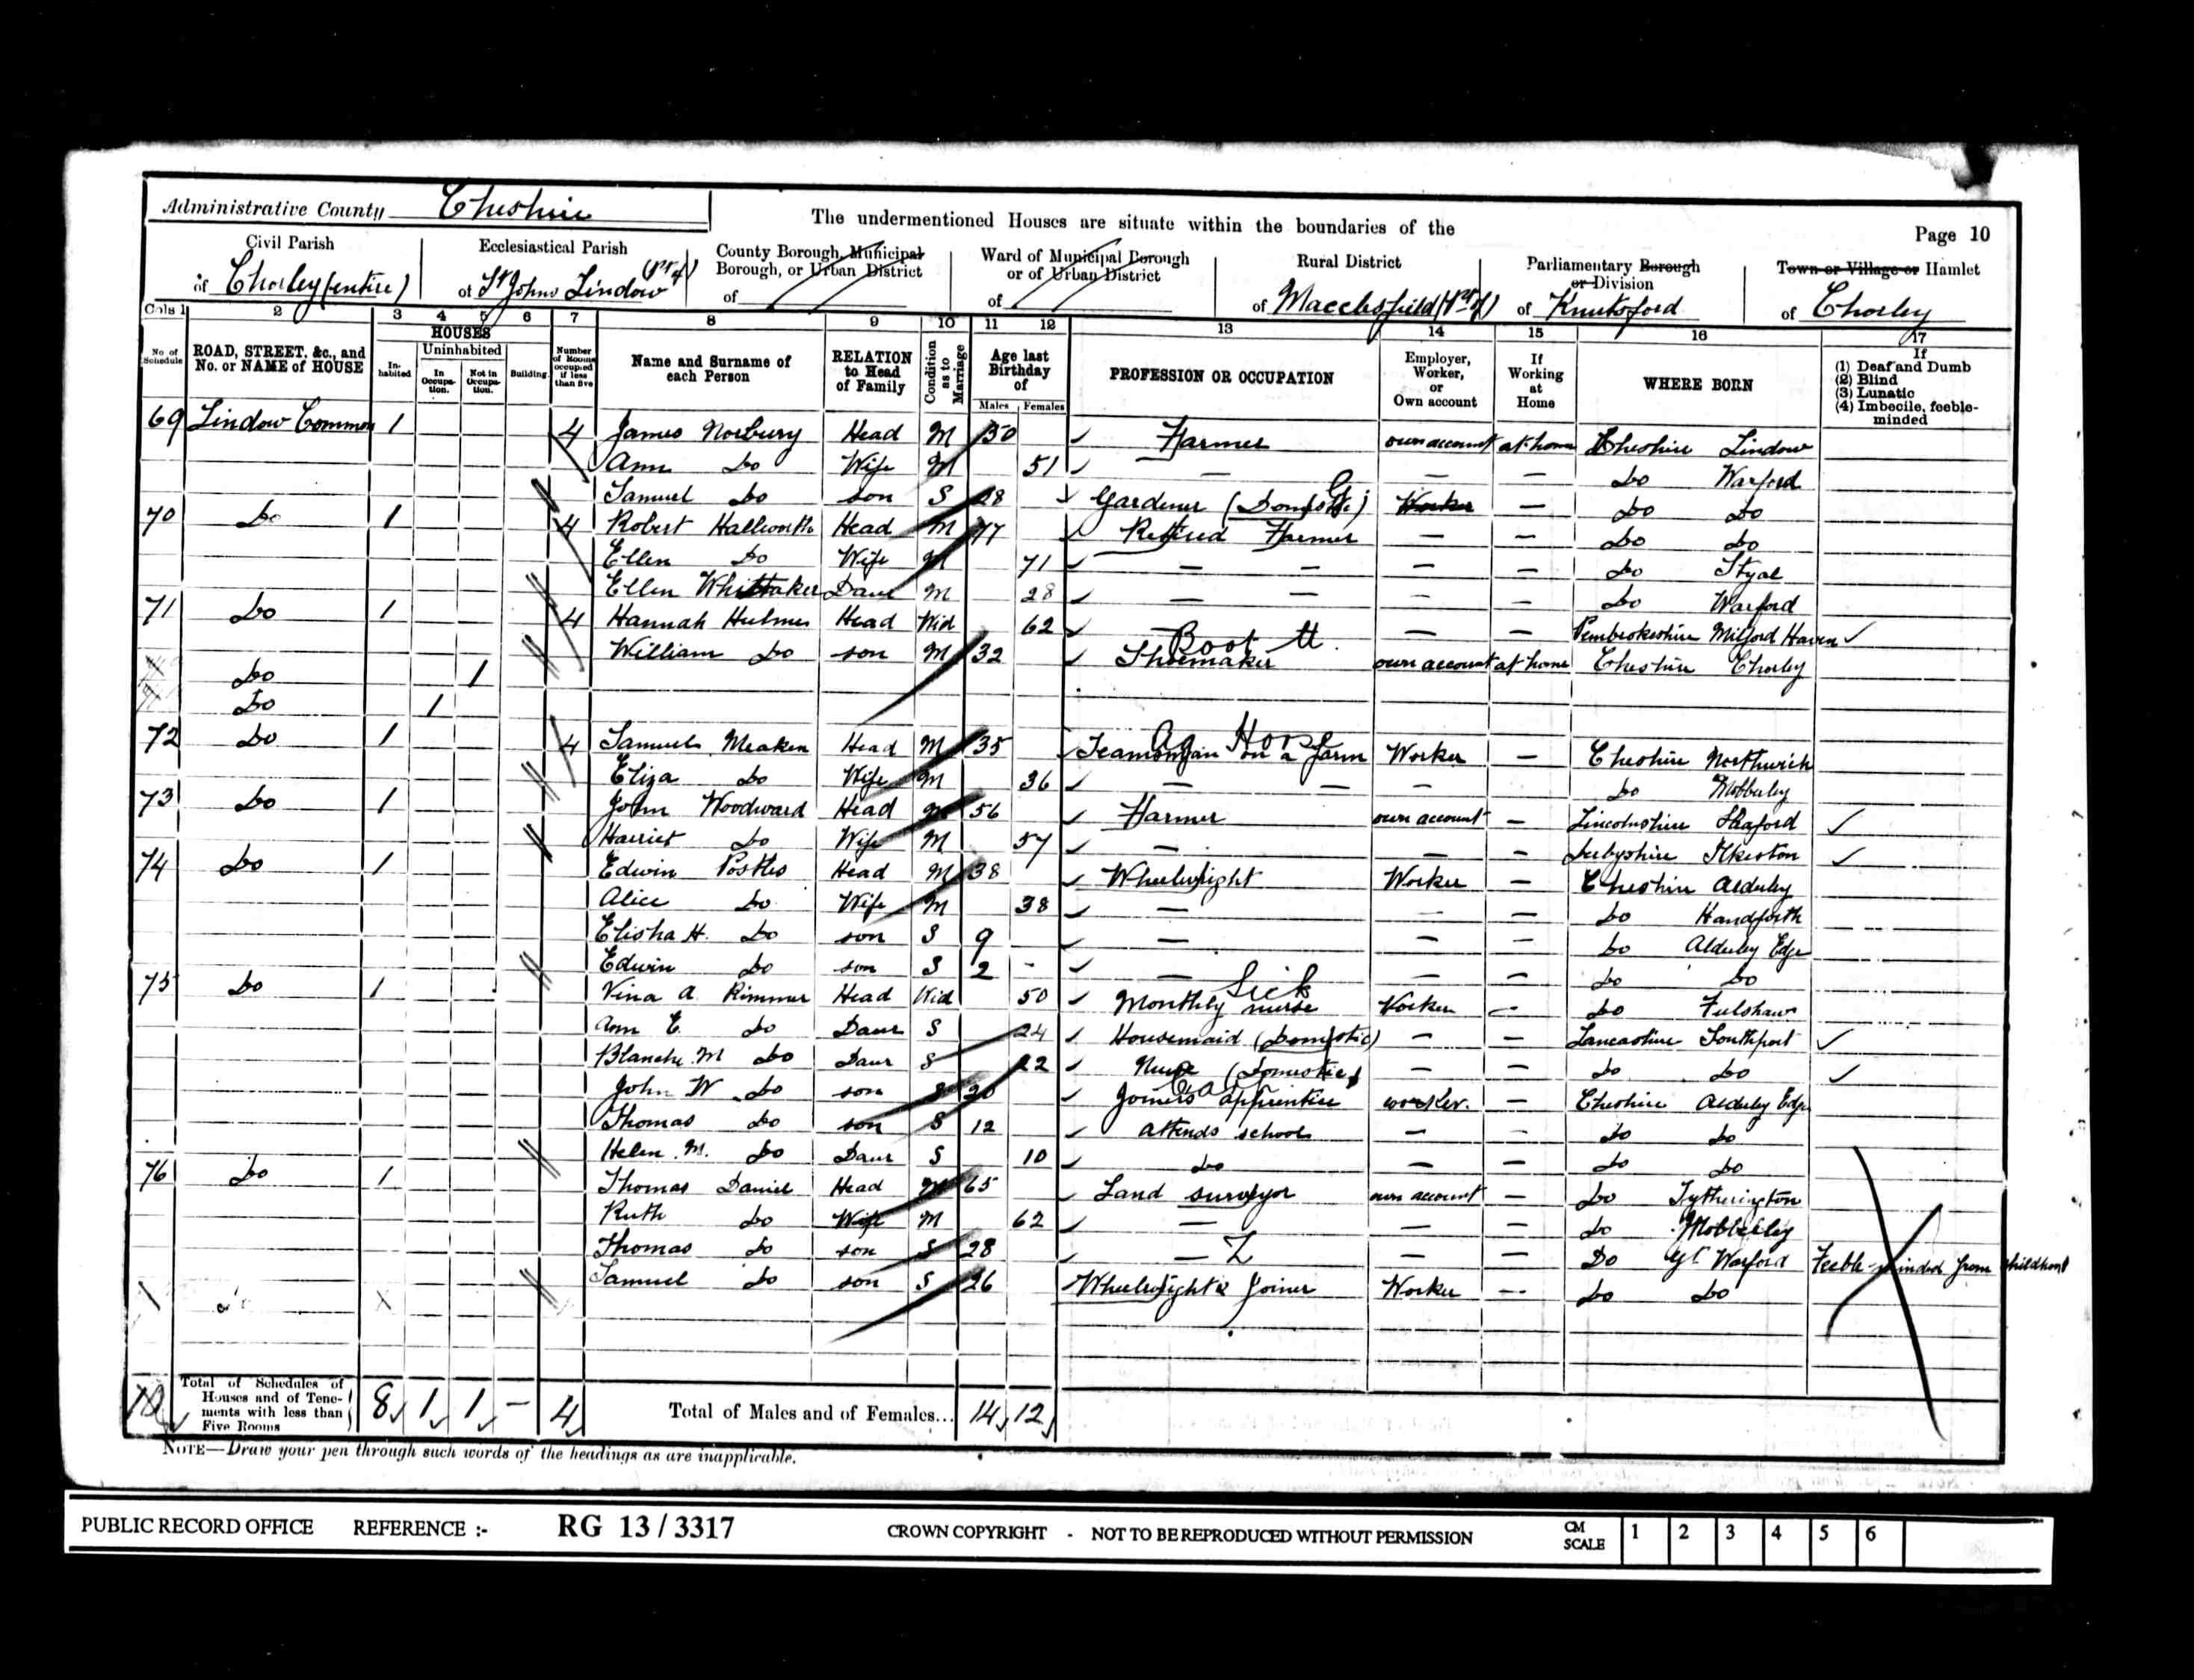 Administrative County Cheshire
The undermentioned Houses are situate within the boundaries of the
Page 10
Civil Parish of Chorley (entire)
Ecclesiastical Parish of St Johns Lindow (pt of)
County Borough, Municipal Borough, or Urban District of
Ward of Municipal Borough or of Urban District of
Rural District of Macclesfield (pt of)
Parliamentary Borough or Division of Knutsford
Town or Village or Hamlet of Chorley
Cols 1 2 3 4 5 6 7 8 9 10 11 12 13 14 15 16 17
No of Schedule
ROAD, STREET, &c., and No. or NAME of HOUSE
HOUSES
In-habited
Uninhabited
In Occupa-tion.
Not in Occupa-tion.
Building
Number of Rooms occupied if less than five
Name and Surname of each Person
RELATION to Head of Family
Condition as to Marriage
Age last Birthday of
Males Females
PROFESSION OR OCCUPATION
Employer, Worker, or Own account
If Working at Home
WHERE BORN
If (1) Deaf and Dumb (2) Blind (3) Lunatic (4) Imbecile, feeble-minded
69 Lindow Common 1 4 James Norbury Head M 50 Farmer own account at home Cheshire Lindow
Ann Do Wife M 51 — — — Do Warford
Samuel Do son S 28 Gardener (Domestic) Worker — Do Do
70 Do 1 4 Robert Hallworth Head M 77 Retired Farmer — — Do Do
Ellen Do Wife M 71 — — — — Do Styal
Ellen Whittaker Daur M 28 — — — — Do Warford
71 Do 1 4 Hannah Hulmes Head Wid 62 — — — Pembrokeshire Milford Haven
William Do son M 32 Boot Shoemaker own account at home Cheshire Chorley
Do 1
Do 1
72 Do 1 4 Samuel Meaken Head M 35 Ag Horse Teamsman on a farm Worker — Cheshire Northwich
Eliza Do Wife M 36 — — — Do Mobberley
73 Do 1 John Woodward Head M 56 Farmer own account — Lincolnshire Sleaford
Harriet Do Wife M 57 — — — Derbyshire Ilkeston
74 Do 1 Edwin Postles Head M 38 Wheelwright Worker — Cheshire Alderley
Alice Do Wife M 38 — — — Do Handforth
Elisha H. Do son S 9 — — — Do Alderley Edge
Edwin Do son S 2 — — — Do Do
75 Do 1 Vina A. Rimmer Head Wid 50 Sick Monthly nurse Worker — Do Fulshaw
Ann E. Do Daur S 24 Housemaid (Domestic) — — Lancashire Southport
Blanche M Do Daur S 22 Nurse (Domestic) — — Do Do
John W Do son S 20 Joiners apprentice worker. — Cheshire Alderley Edge
Thomas Do son S 12 attends school — — Do Do
Helen M. Do Daur S 10 Do — — Do Do
76 Do 1 Thomas Daniel Head M 65 Land surveyor own account — Do Tytherington
Ruth Do Wife M 62 — — — Do Mobberley
Thomas Do son S 28 — — — Do Gt Warford Feeble-minded from childhood
Samuel Do son S 26 Wheelwright & Joiner Worker — Do Do
Total of Schedules of Houses and of Tene-ments with less than Five Rooms 8 1 1 — 4
Total of Males and of Females... 14 12
NOTE—Draw your pen through such words of the headings as are inapplicable.
PUBLIC RECORD OFFICE REFERENCE :- RG 13 / 3317 CROWN COPYRIGHT - NOT TO BE REPRODUCED WITHOUT PERMISSION CM SCALE 1 2 3 4 5 6